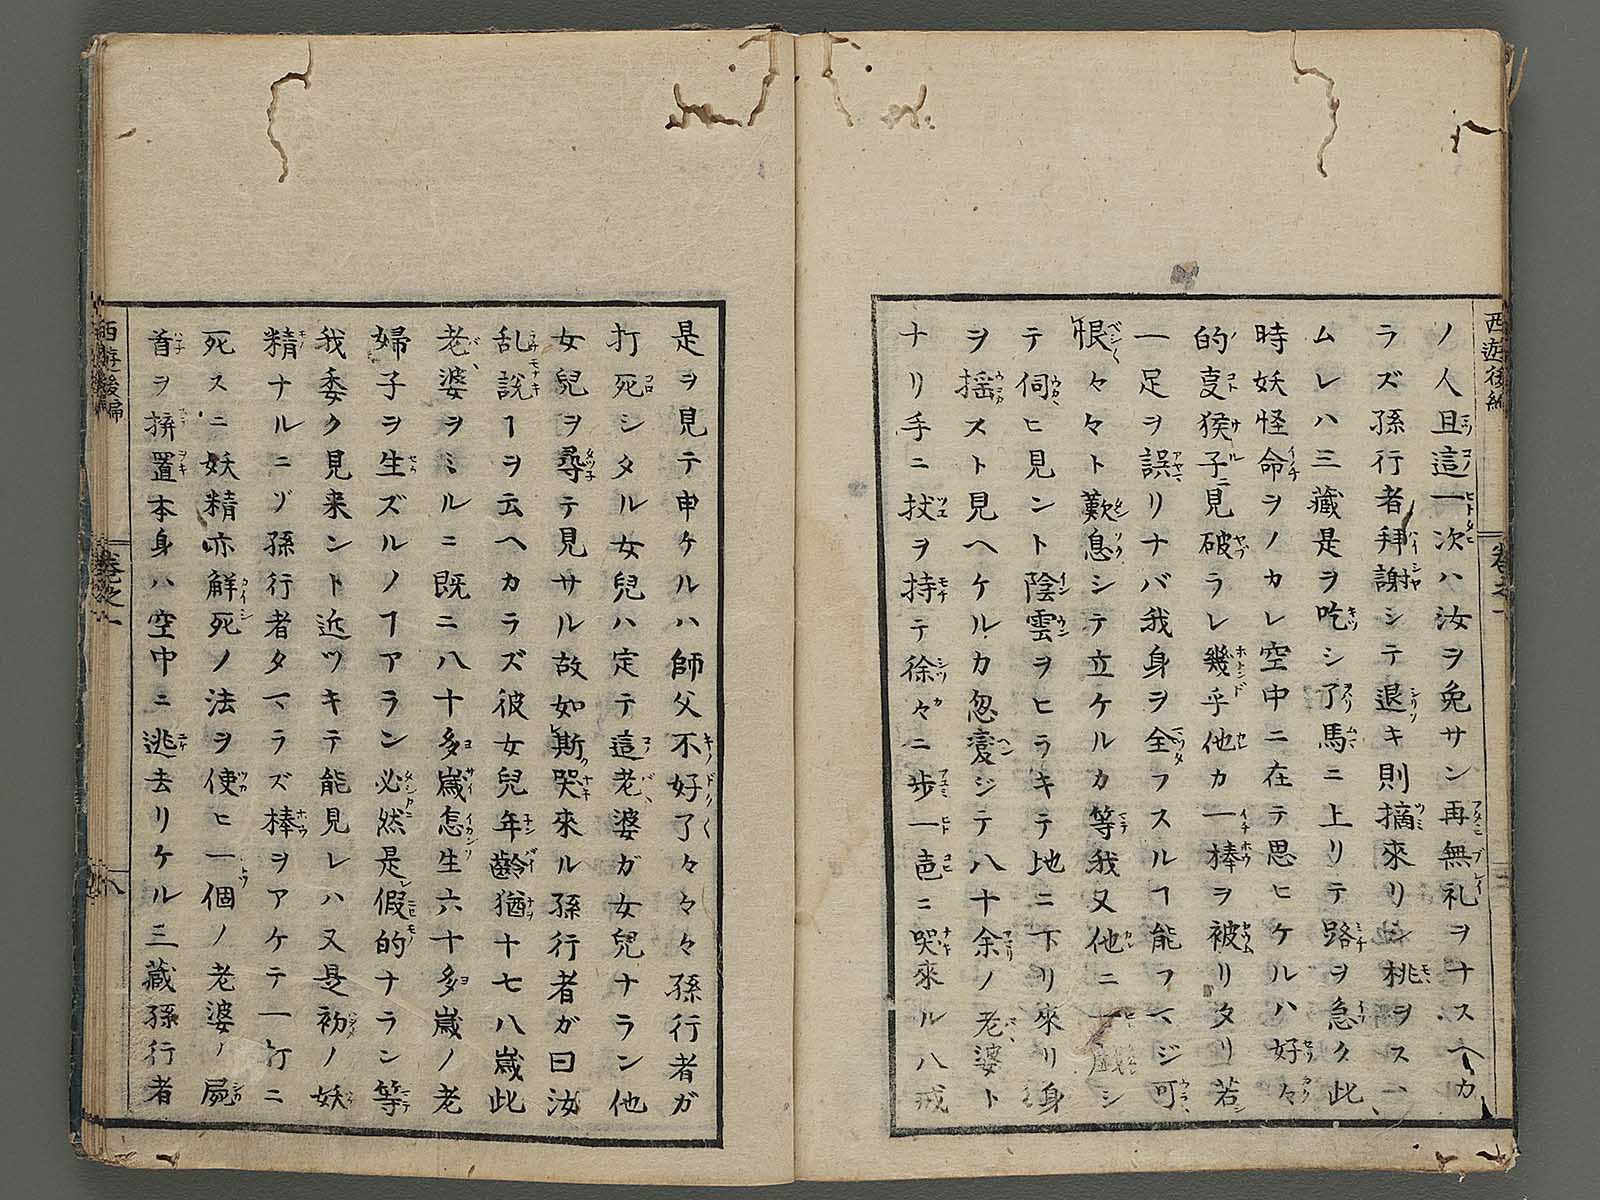 西遊後編
卷之一
ノ人且這一次ハ汝ヲ免サン再無礼ヲナスヿカ
ラズ孫行者拜謝シテ退キ則摘來リシ桃ヲスヽ
ムレハ三藏是ヲ吃シ了馬ニ上リテ路ヲ急ク此
時妖怪命ヲノカレ空中ニ在テ思ヒケルハ好々
的㕝猴子ニ見破ラレ幾乎他カ一棒ヲ被リタリ若
一足ヲ誤リナバ我身ヲ全フスルヿ能フマジ可
恨々々ト歎息シテ立ケルカ等我又他ニ一戯シ
テ伺ヒ見ント陰雲ヲヒラキテ地ニ下リ來リ身
ヲ揺スト見ヘケルカ忽変ジテ八十余ノ老婆ト
ナリ手ニ杖ヲ持テ徐々ニ歩一邑ニ哭來ル八戒
是ヲ見テ申ケルハ師父不好了々々々孫行者ガ
打死シタル女兒ハ定テ這老婆ガ女兒ナラン他
女兒ヲ尋テ見サル故如斯哭來ル孫行者ガ曰汝
乱説ヿヲ云ヘカラズ彼女兒年齡猶十七八歳此
老婆ヲミルニ既ニ八十多歳怎生六十多歳ノ老
婦子ヲ生ズルノヿアラン必然是假的ナラン等
我委ク見来ント近ツキテ能見レハ又是初ノ妖
精ナルニゾ孫行者タマラズ棒ヲアケテ一打ニ
死スニ妖精亦解死ノ法ヲ使ヒ一個ノ老婆ノ屍
首ヲ搠置本身ハ空中ニ逃去リケル三藏孫行者
西遊後編
卷之一
八